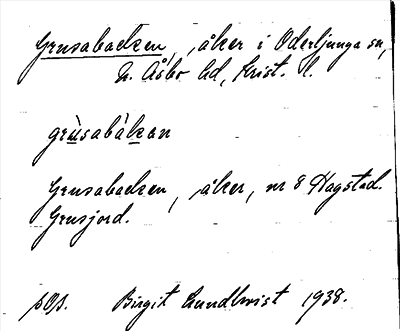 Grusabacken, åker i Oderljunga sn,
N. Åsbo hd, Krist. l.
grùsabákan
Grusabacken, åker, nr 8 Hagstad.
Grusjord.
pOp. Birgit Lundqvist 1938.